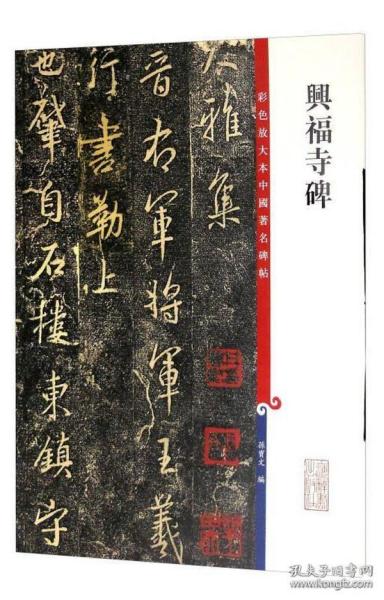 興福寺碑
彩色放大本中國著名碑帖
孫寶文 編
大雅集
晉右軍將軍王羲
行書勒上
也肇自石樓東鎮守
孔夫子旧书网
www.kongfz.com